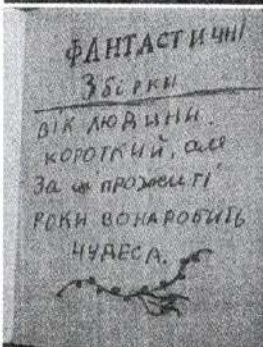 ФАНТАСТИЧНІ
Збірки
ВІК ЛЮДИНИ.
КОРОТКИЙ, але
За прожиті
РОКИ ВОНА РОБИТЬ
ЧУДЕСА.